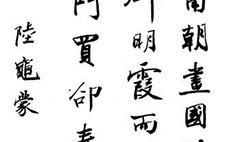 南朝畫國
明霞而
門買卻春
陸龜蒙